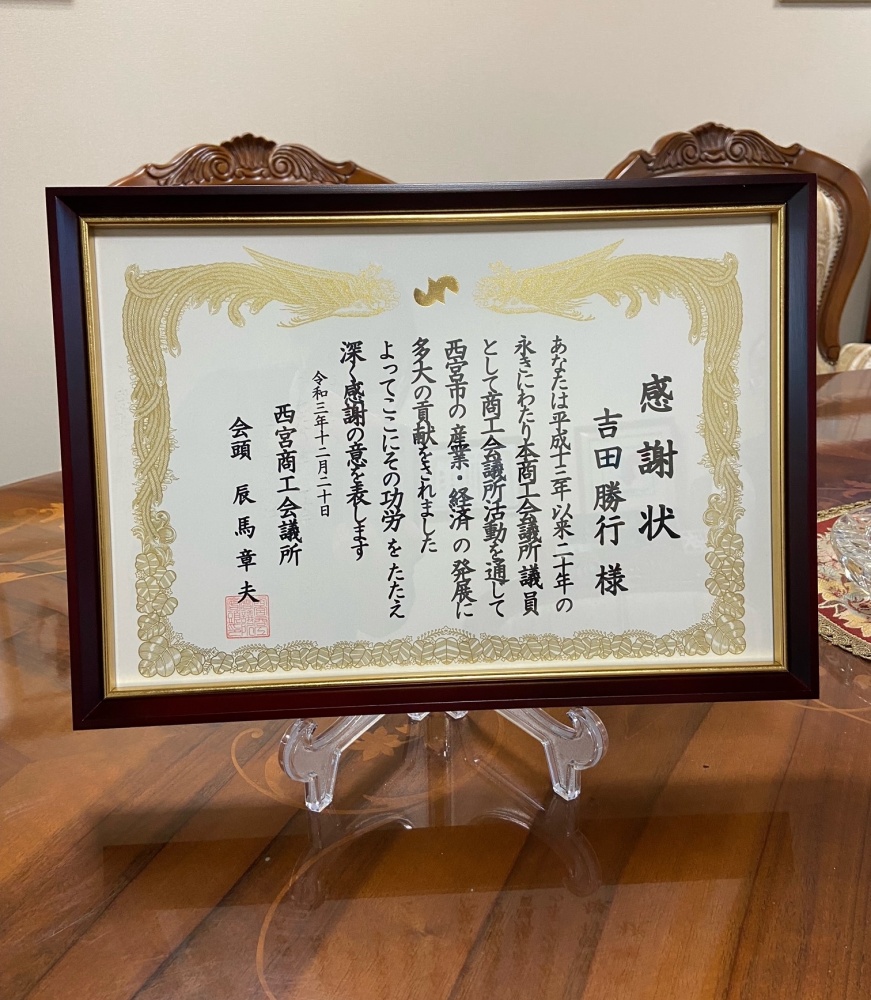 感謝状
吉田勝行 様
あなたは平成十三年以来二十年の
永きにわたり本商工会議所議員
として商工会議所活動を通して
西宮市の産業・経済の発展に
多大の貢献をされました
よってここにその功労をたたえ
深く感謝の意を表します
令和三年十二月二十日
西宮商工会議所
会頭 辰馬章夫